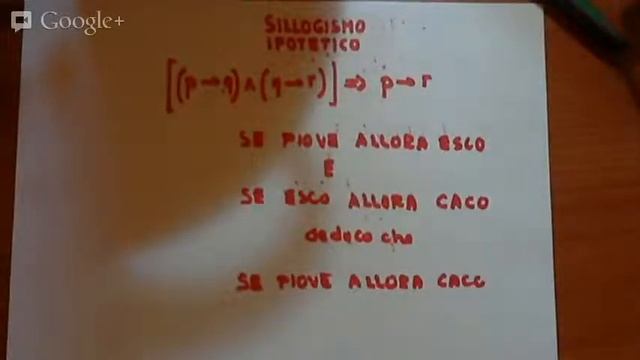 Google+
SILLOGISMO
IPOTETICO
[(p→q)∧(q→r)]⇒ p→r
SE PIOVE ALLORA ESCO
E
SE ESCO ALLORA CACO
deduco che
SE PIOVE ALLORA CACO